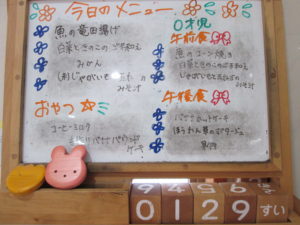 今日のメニュー
魚の竜田揚げ
白菜ときのこのごま和え
みかん
じゃがいも
みそ汁
おやつ
コーヒーミルク
バナナパウンド
ケーキ
0才児
午前食
魚のコーン焼き
白菜ときのこのごま和え
じゃがいもと
みそ汁
午後食
バナナホットケーキ
ほうれん草のポタージュ
果物
0 1 2 9 すい